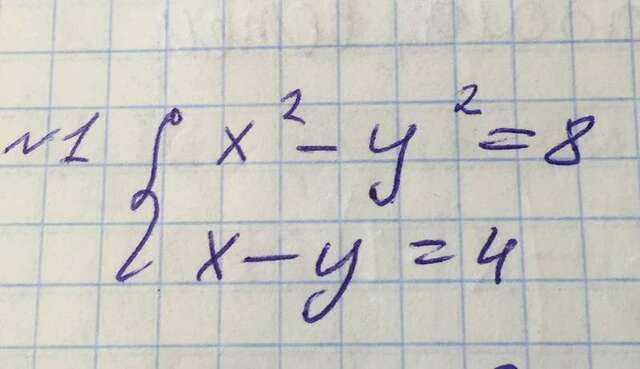 №1 { x² - y² = 8
x - y = 4